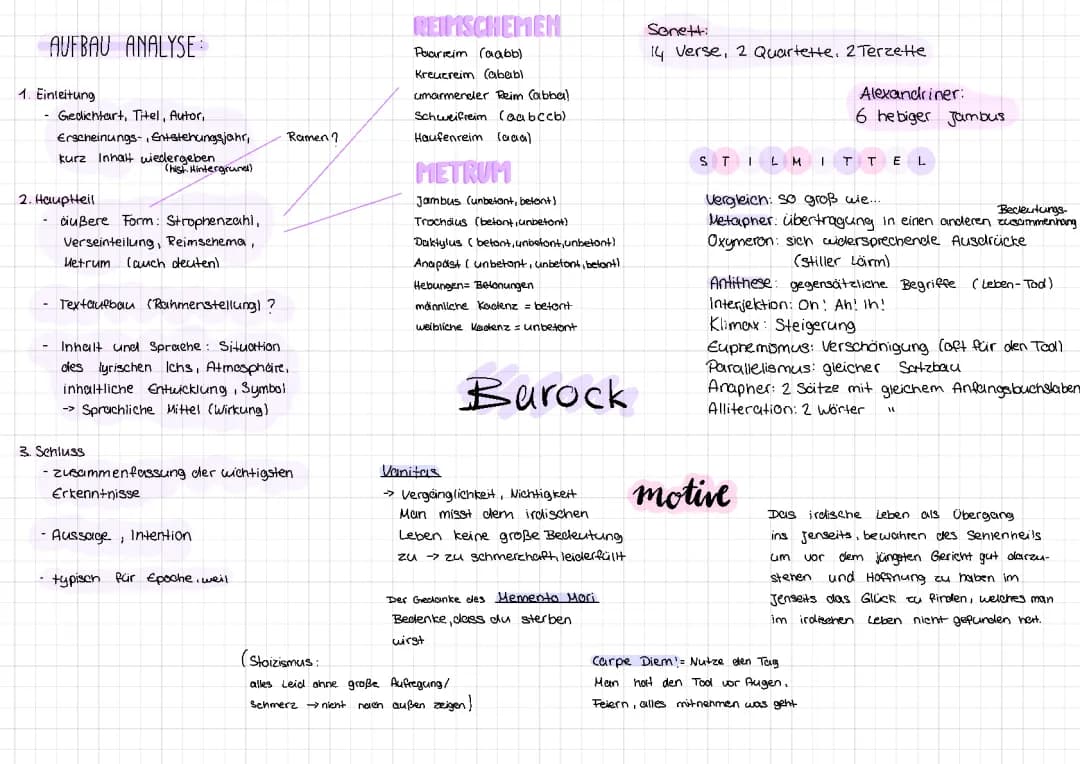 AUFBAU ANALYSE:
1. Einleitung
- Gedichtart, Titel, Autor,
Erscheinungs-, Entstehungsjahr,
kurz Inhalt wiedergeben
(hist. Hintergrund)
Ramen?
2. Hauptteil
- äußere Form: Strophenzahl,
Verseinteilung, Reimschema,
Metrum (auch deuten)
- Textaufbau (Rahmenstellung) ?
- Inhalt und Sprache: Situation
des lyrischen Ichs, Atmosphäre,
inhaltliche Entwicklung, Symbol
-> Sprachliche Mittel (Wirkung)
3. Schluss
- Zusammenfassung der wichtigsten
Erkenntnisse
- Aussage, Intention
- typisch für Epoche, weil
REIMSCHEMEN
Paarreim (aabb)
Kreuzreim (abab)
umarmender Reim (abba)
Schweifreim (aabccb)
Haufenreim (aaa)
METRUM
Jambus (unbetont, betont)
Trochäus (betont, unbetont)
Daktylus (betont, unbetont, unbetont)
Anapäst (unbetont, unbetont, betont)
Hebungen = Betonungen
männliche Kadenz = betont
weibliche Kadenz = unbetont
Sonett:
14 Verse, 2 Quartette, 2 Terzette
Alexandriner:
6 hebiger Jambus
STILMITTEL
Vergleich: so groß wie...
Metapher: übertragung in einen anderen Bedeutungs-
zusammenhang
Oxymeron: sich widersprechende Ausdrücke
(stiller Lärm)
Antithese: gegensätzliche Begriffe (Leben-Tod)
Interjektion: Oh! Ah! Ih!
Klimax: Steigerung
Euphemismus: Verschönigung (oft für den Tod)
Parallelismus: gleicher Satzbau
Anapher: 2 Sätze mit gleichem Anfangsbuchstaben
Alliteration: 2 Wörter "
Barock
Vanitas
-> Vergänglichkeit, Nichtigkeit
Man misst dem irdischen
Leben keine große Bedeutung
zu -> zu schmerzhaft, leiderfüllt
Der Gedanke des Memento Mori
Bedenke, dass du sterben
wirst
motive
Das irdische Leben als Übergang
ins Jenseits, bewahren des Seelenheils
um vor dem jüngsten Gericht gut darzu-
stehen und Hoffnung zu haben im
Jenseits das Glück zu finden, welches man
im irdischen Leben nicht gefunden hat.
(Stoizismus:
alles Leid ohne große Aufregung/
Schmerz -> nicht nach außen zeigen)
Carpe Diem! = Nutze den Tag
Man hat den Tod vor Augen.
Feiern, alles mitnehmen was geht